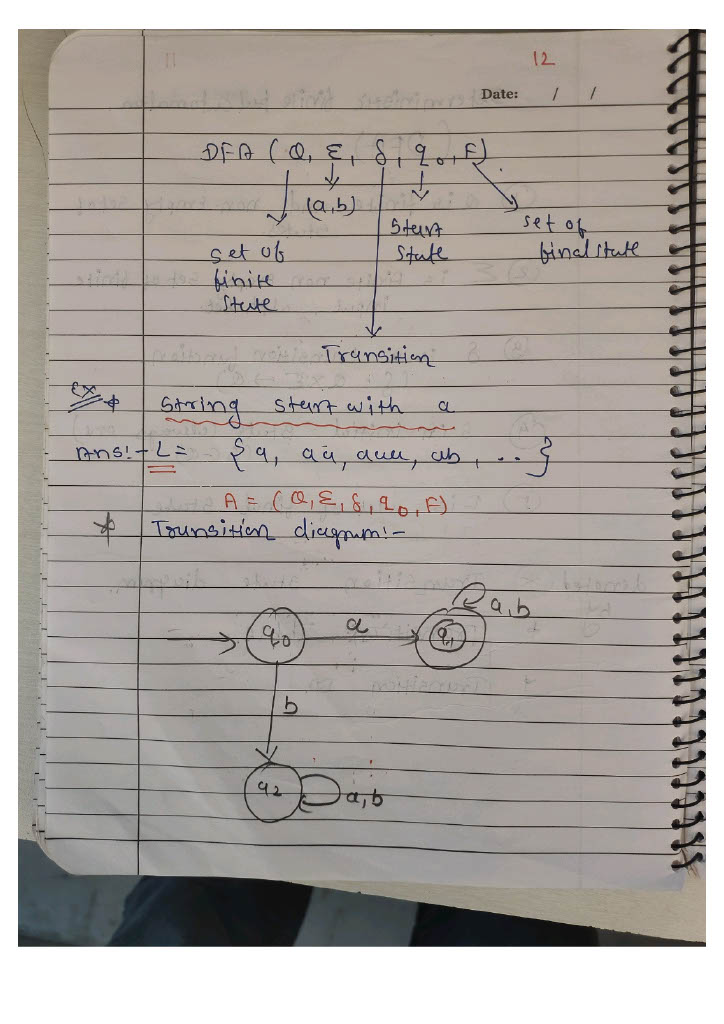 12
Date: / /
DFA (Q, Σ, δ, q0, F).
(a,b)
Start
state
set of
final state
set of
finite
state
Transition
Ex String start with a
Ans:- L = {a, aa, aaa, ab, ..}
A = (Q, Σ, δ, q0, F)
Transition diagram:-
a,b
q0 a q1
b
q2 a,b